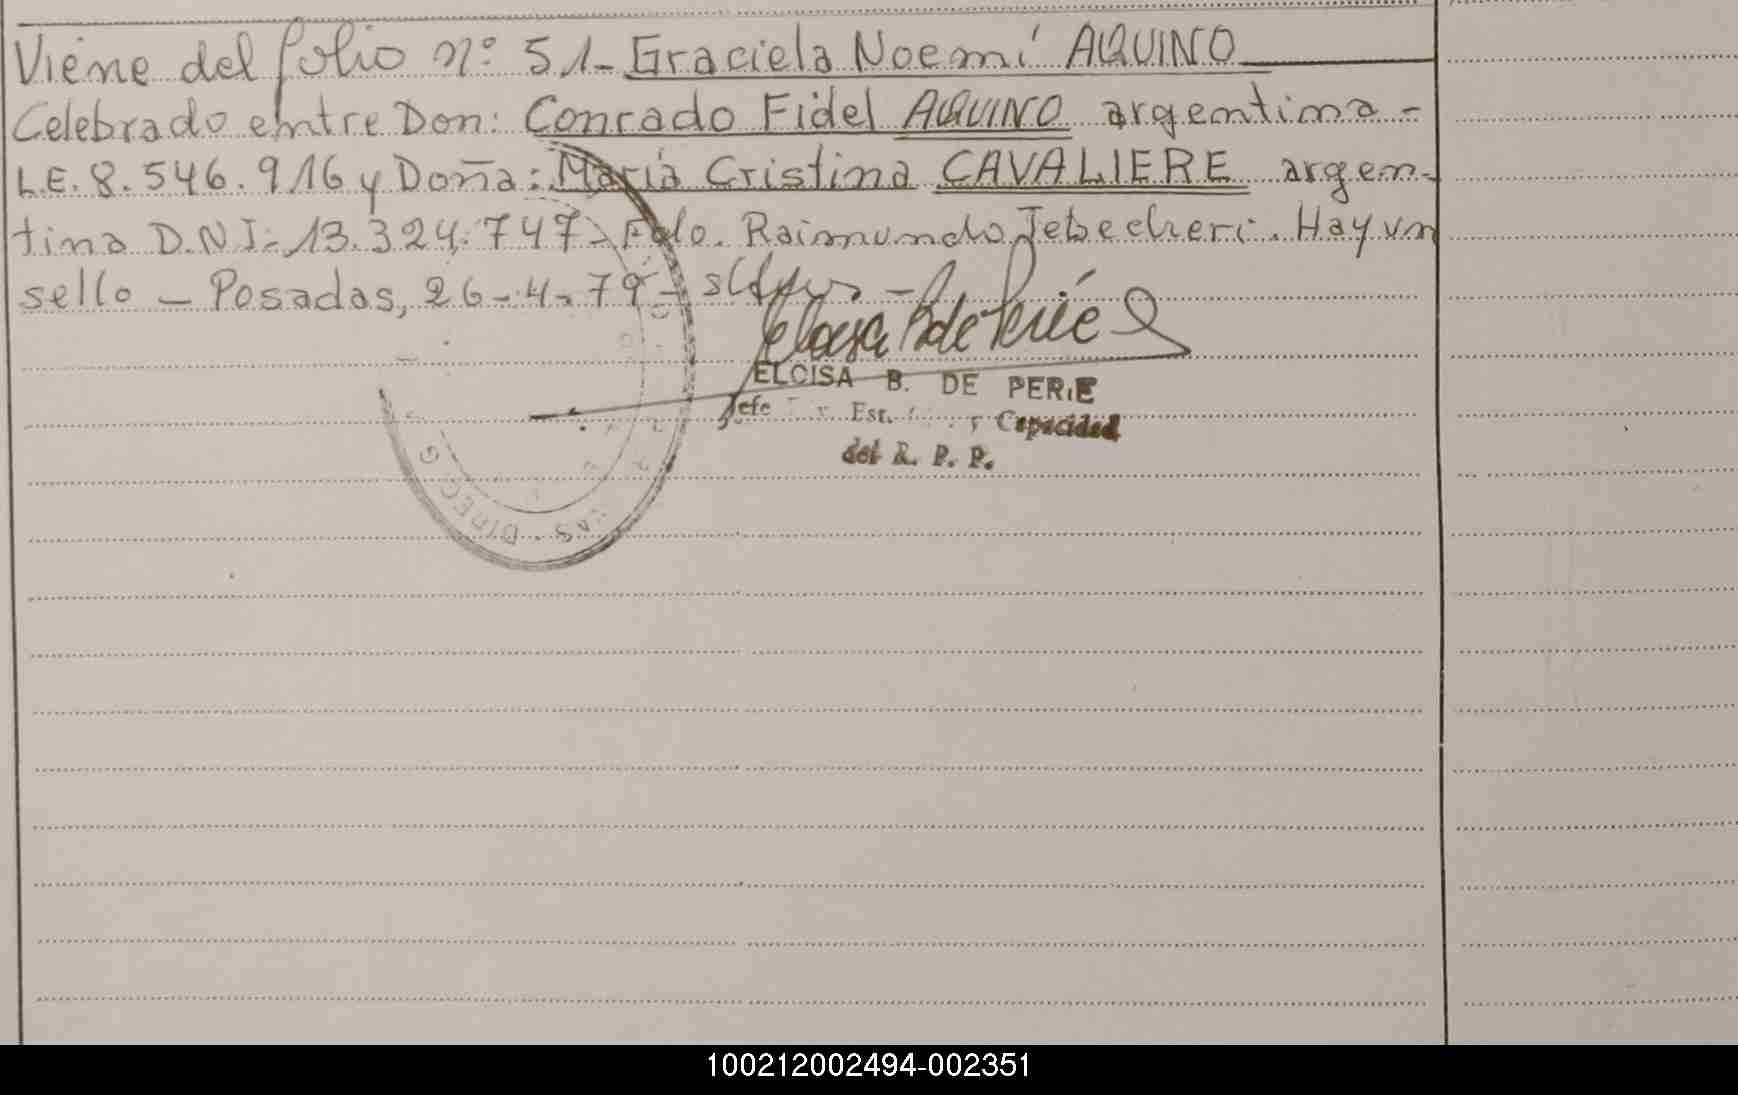 Viene del folio nº 51- Graciela Noemí AQUINO
Celebrado entre Don: Conrado Fidel AQUINO argentina -
L.E. 8.546.916 y Doña: María Cristina CAVALIERE argen-
tina D.N.I. 13.324.747- Fdo. Raimundo Jebecheri. Hay un
sello - Posadas, 26-4-79-
ELOISA B. DE PERIE
Jefe Est. y Capacidad
del R. P. P.
DIRECC
100212002494-002351